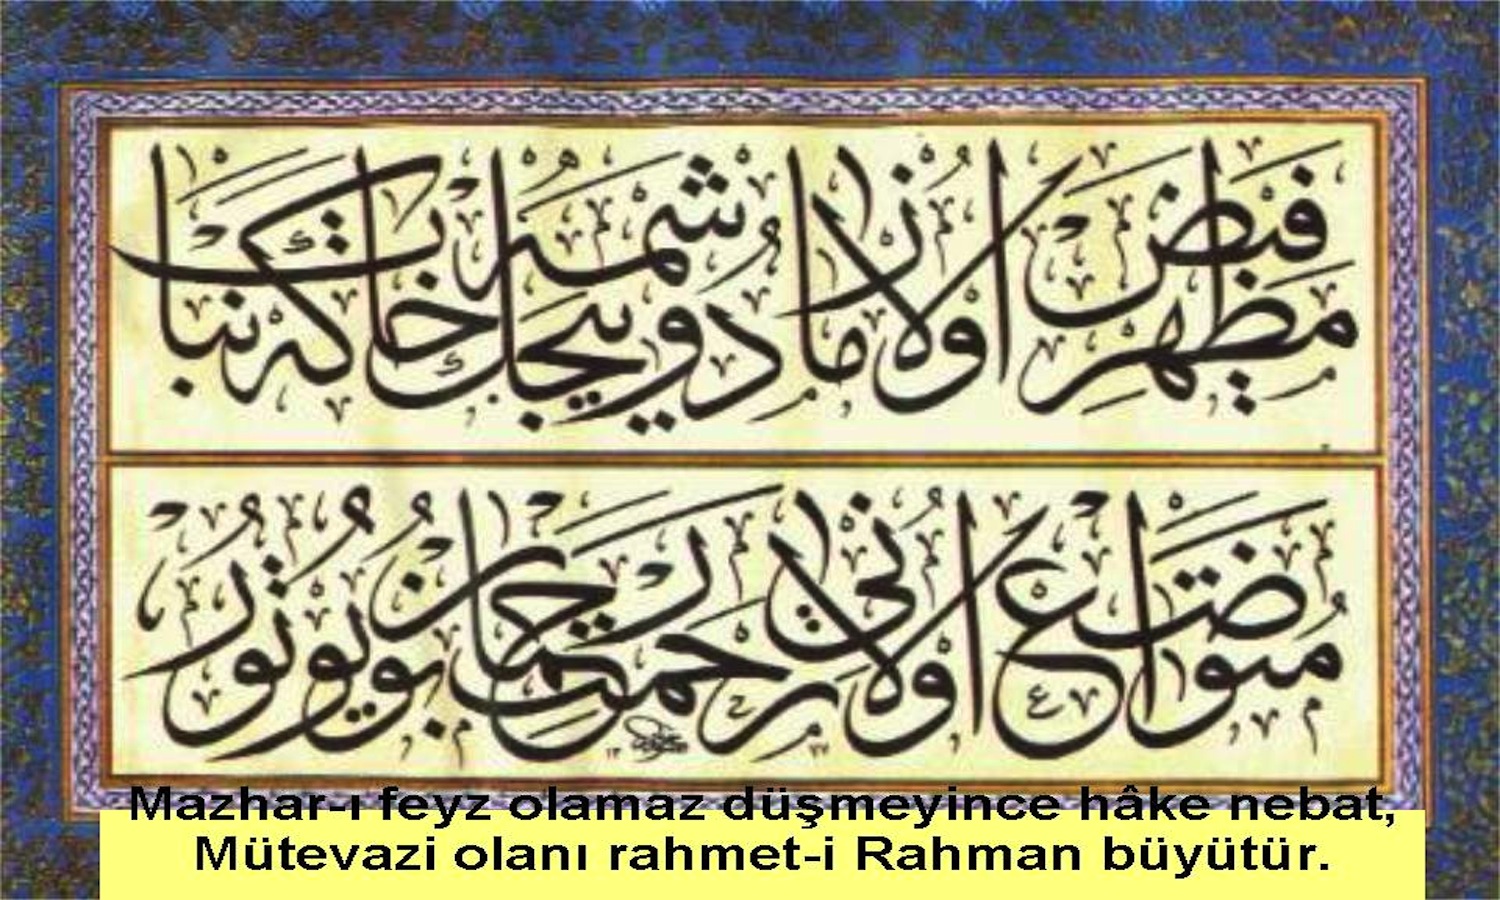 مظهر فيض اولاماز دوشمه‌ينجه خاكه نبات
متواضع اولانى رحمت رحمان بويوتور
Mazhar-ı feyz olamaz düşmeyince hâke nebat,
Mütevazi olanı rahmet-i Rahman büyütür.